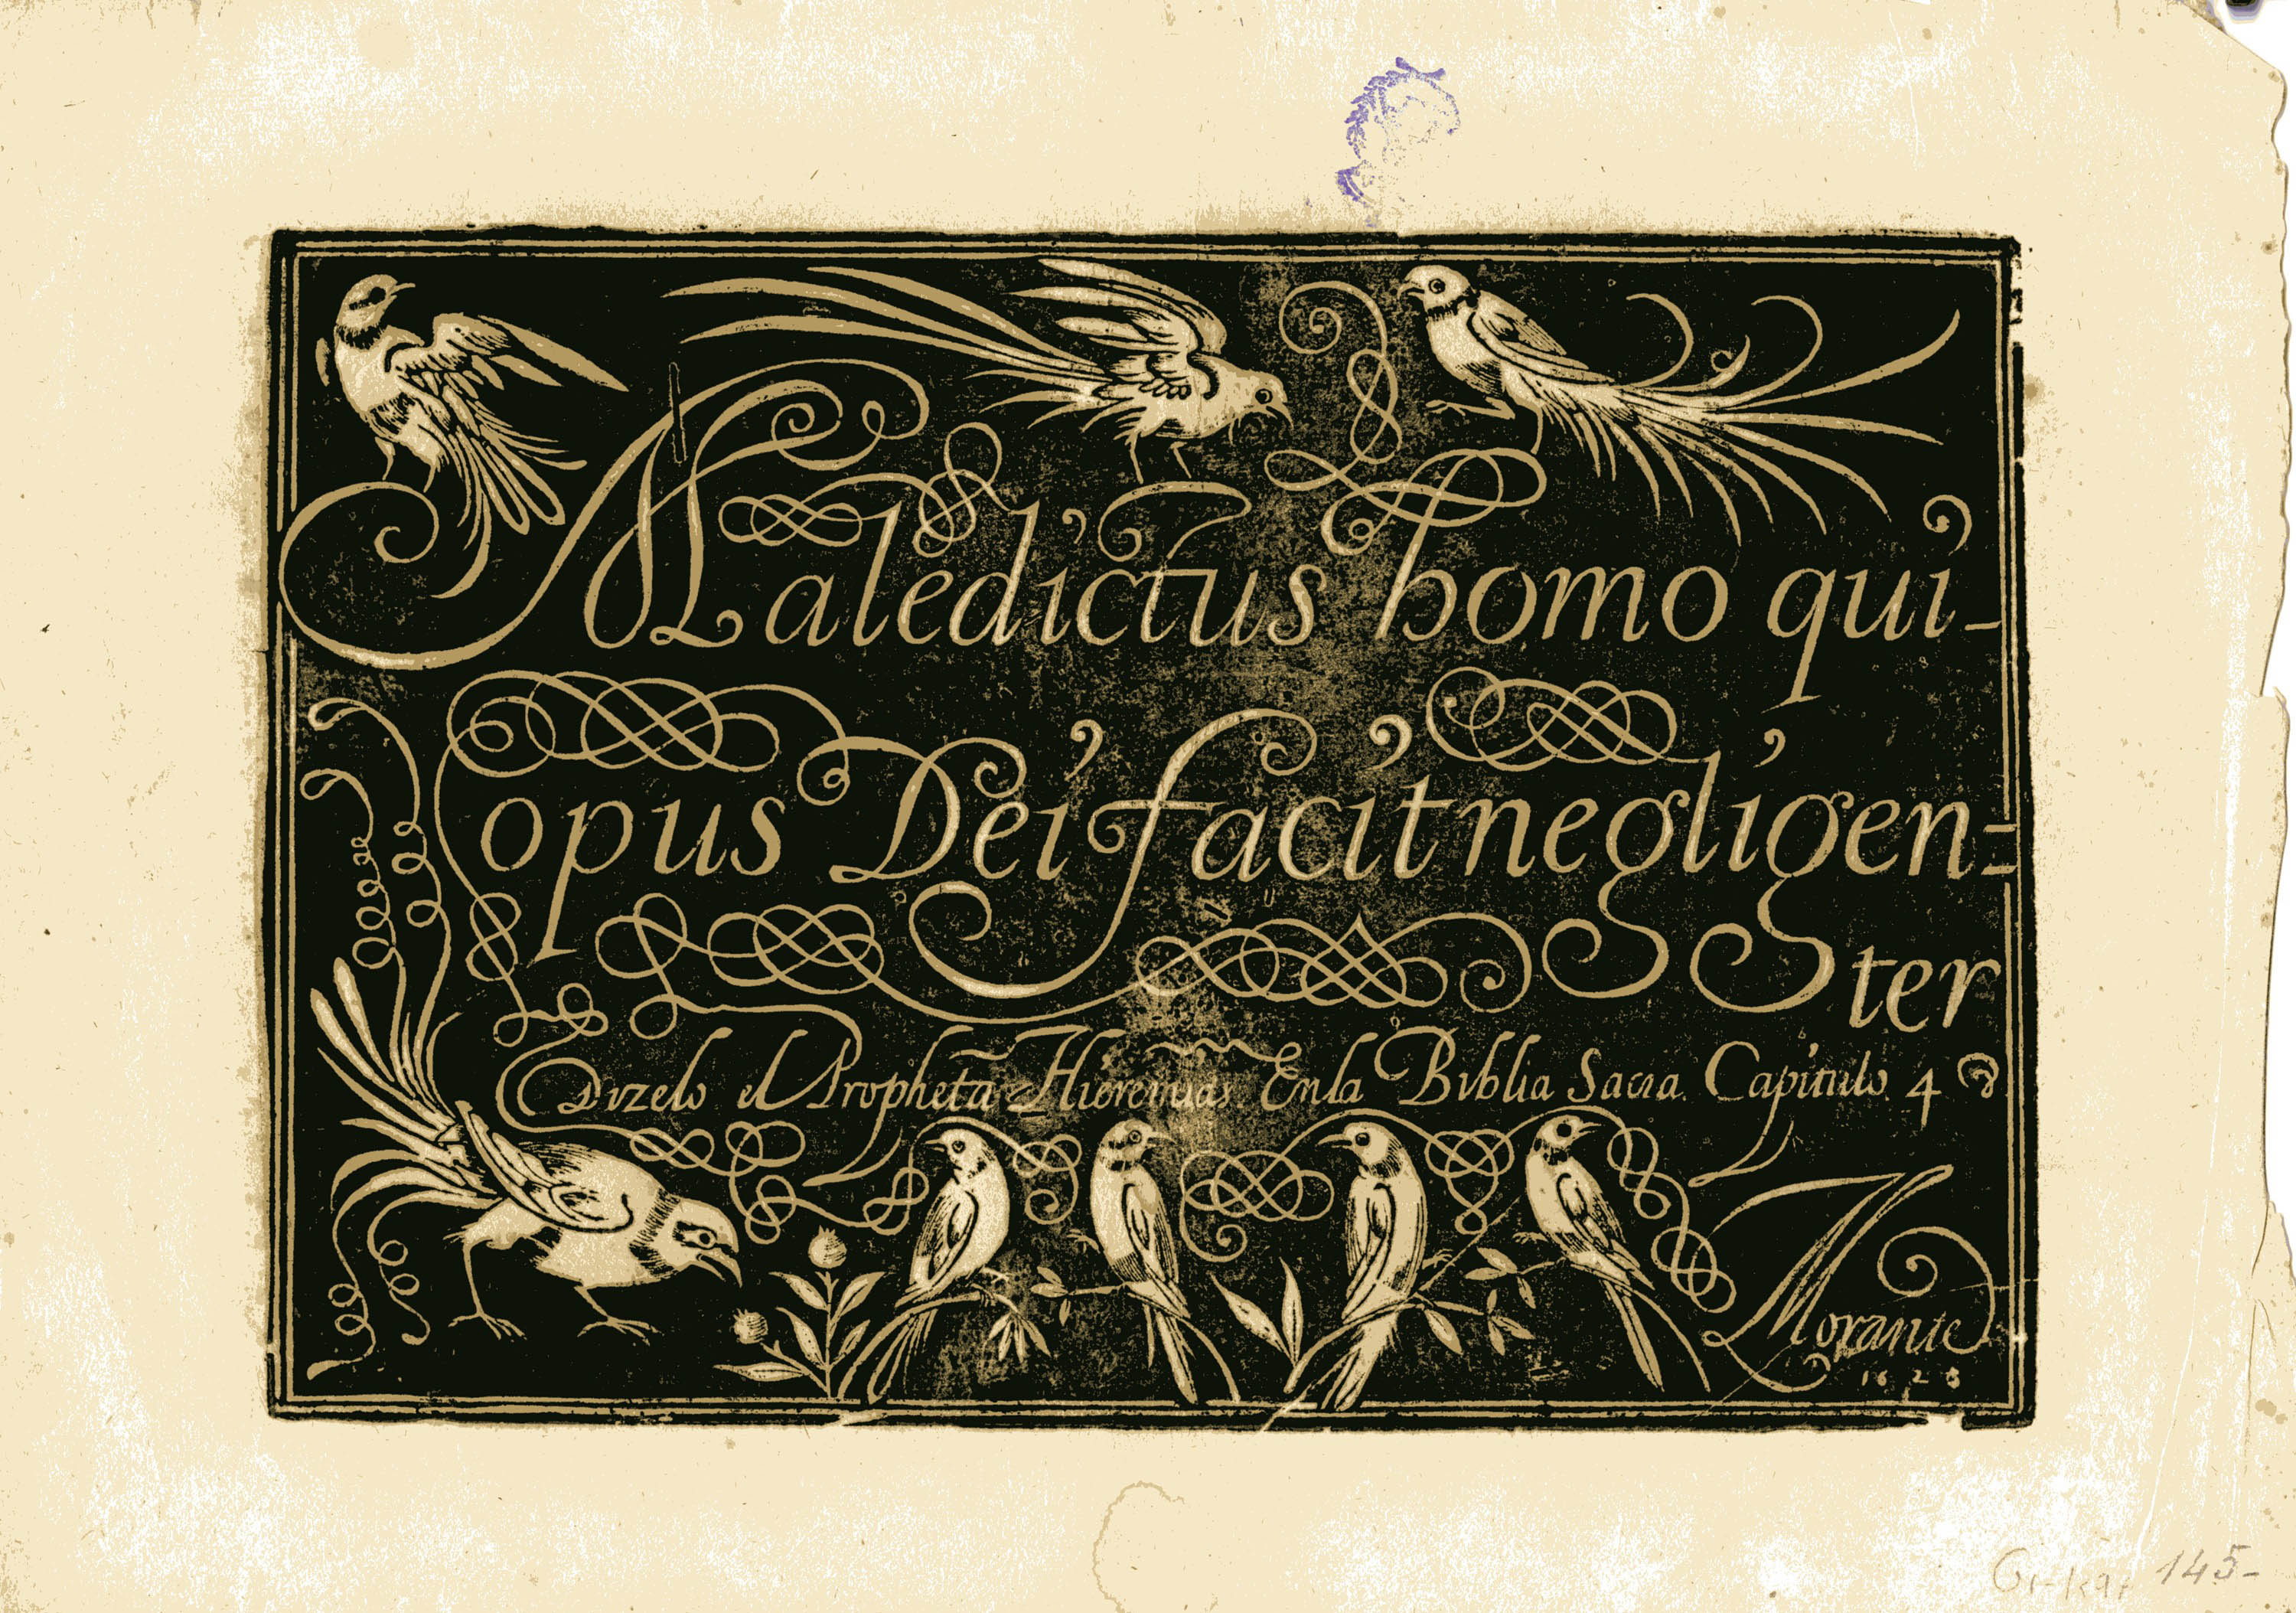 Maledictus homo qui-
opus Dei facit negligen=
ter
Dizelo el Propheta Hieremias. En la Biblia Sacra. Capitulo. 4
Morante
1623
145-